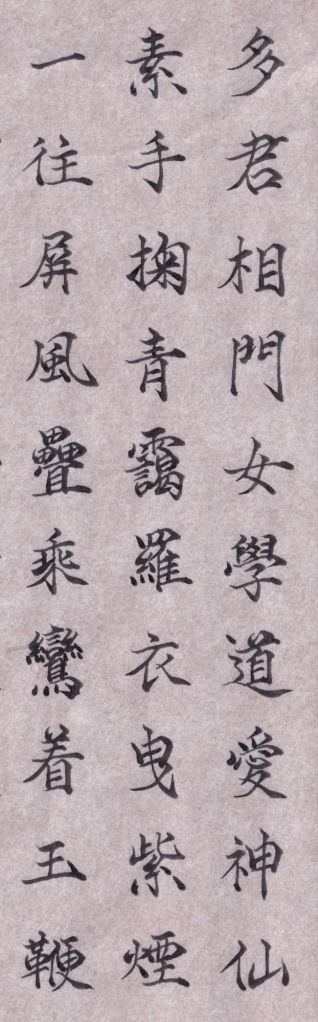 多君相門女學道愛神仙
素手掬青靄羅衣曳紫煙
一往屏風疊乘鸞着玉鞭